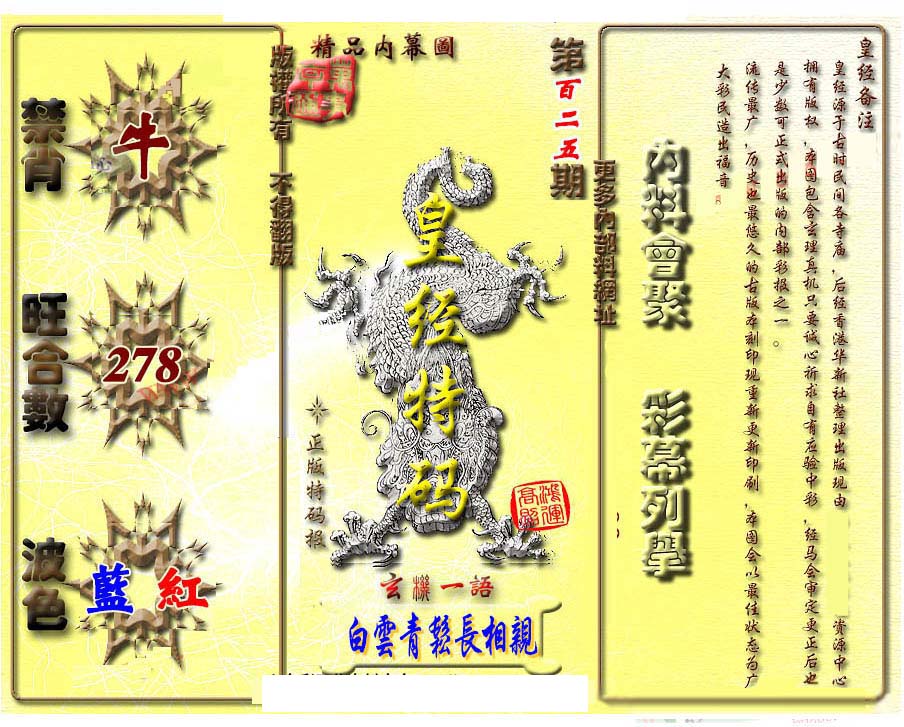 精品内幕圖
版權所有 不得翻版
第百二五期
禁肖
牛
旺合數
278
波色
藍 紅
皇经特码
正版特码报
鴻運高照
玄機一語
白雲青鬆長相親
更多內部料網址
內料會聚
彩幕列舉
皇经备注
皇经源于古时民间各寺庙，后经香港华新社整理出版现由 资源中心
拥有版权，本图包含玄理真机只要诚心祈求自有应验中彩，经马会审定更正后也
是少数可正式出版的内部彩报之一。
流传最广，历史也最悠久的古版本刻印现重新更新印刷，本图会以最佳状态为广
大彩民造出福音